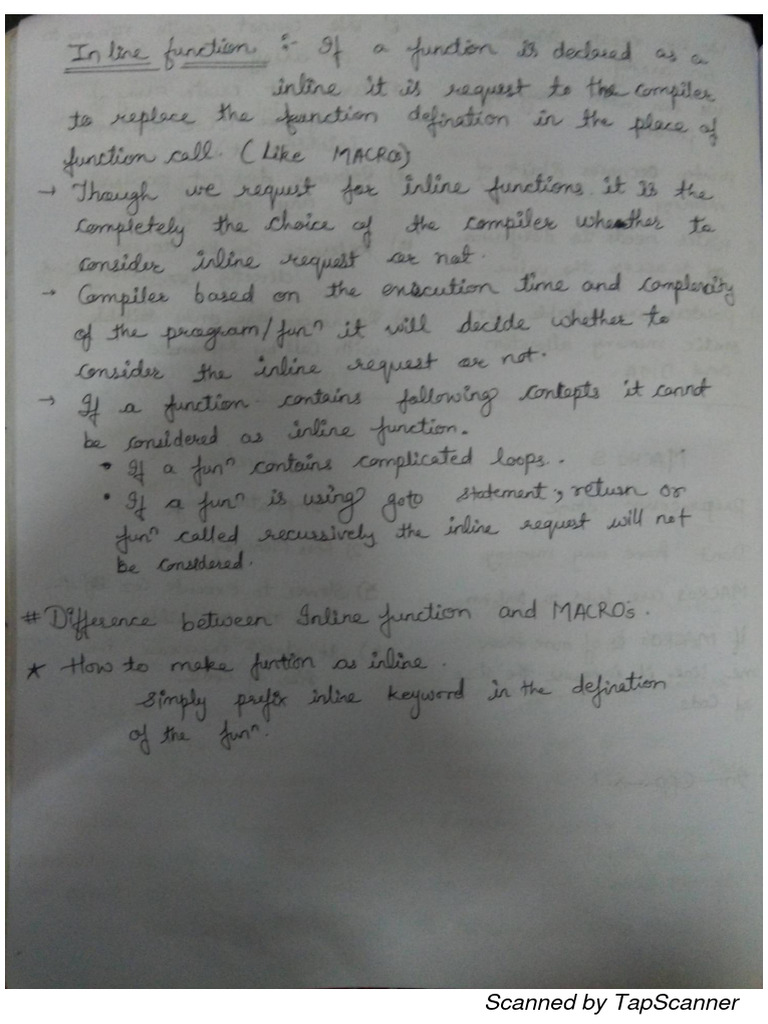 Inline function :- If a function is declared as a
inline it is request to the compiler
to replace the function defination in the place of
function call. (Like MACROs)
→ Though we request for inline functions it is the
completely the choice of the compiler wheather to
consider inline request or not.
→ Compiler based on the enxcution time and complexity
of the program/funⁿ it will decide whether to
consider the inline request or not.
→ If a function contains following contepts it cannot
be considered as inline function.
• If a funⁿ contains complicated loops.
• If a funⁿ is using goto statement, return or
funⁿ called recussively the inline request will not
be considered.
# Difference between Inline function and MACROs.
* How to make funtion as inline.
Simply prefix inline keyword in the defination
of the funⁿ.
Scanned by TapScanner